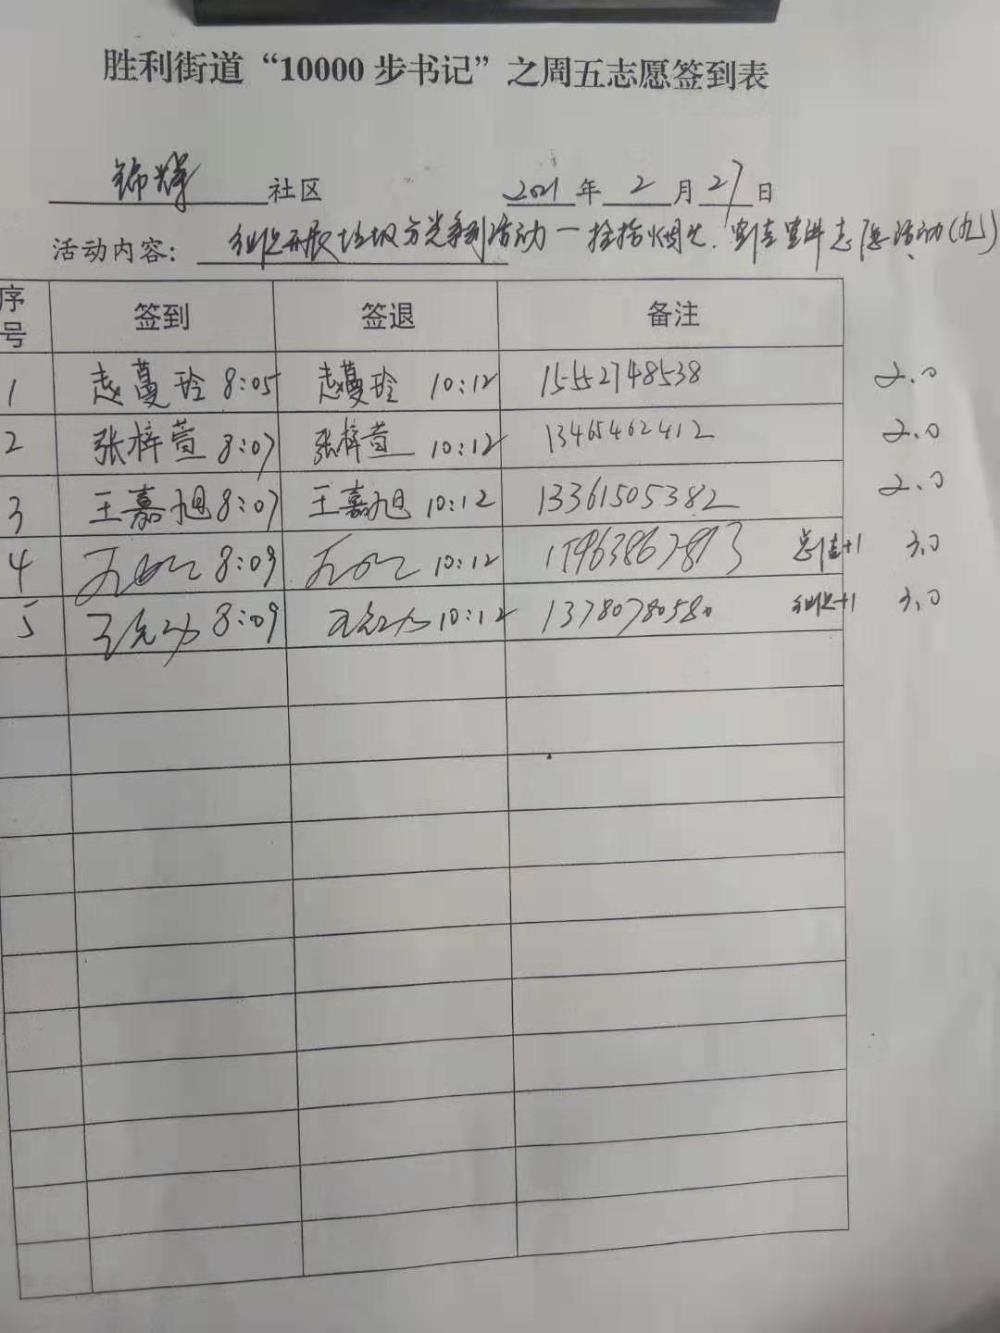 胜利街道“10000步书记”之周五志愿签到表
锦辉 社区 2021年2月27日
活动内容：组织开展垃圾分类系列活动一捡拾烟头、志愿活动(九)
序号 签到 签退 备注
1 赵蔓玲 8:05 赵蔓玲 10:12 15552748538 2.0
2 张梓萱 8:07 张梓萱 10:12 13465462412 2.0
3 王嘉旭 8:07 王嘉旭 10:12 13361505382 2.0
4 8:09 10:12 总结+1 3.0
5 8:09 10:12 13780780580 组织+1 3.0